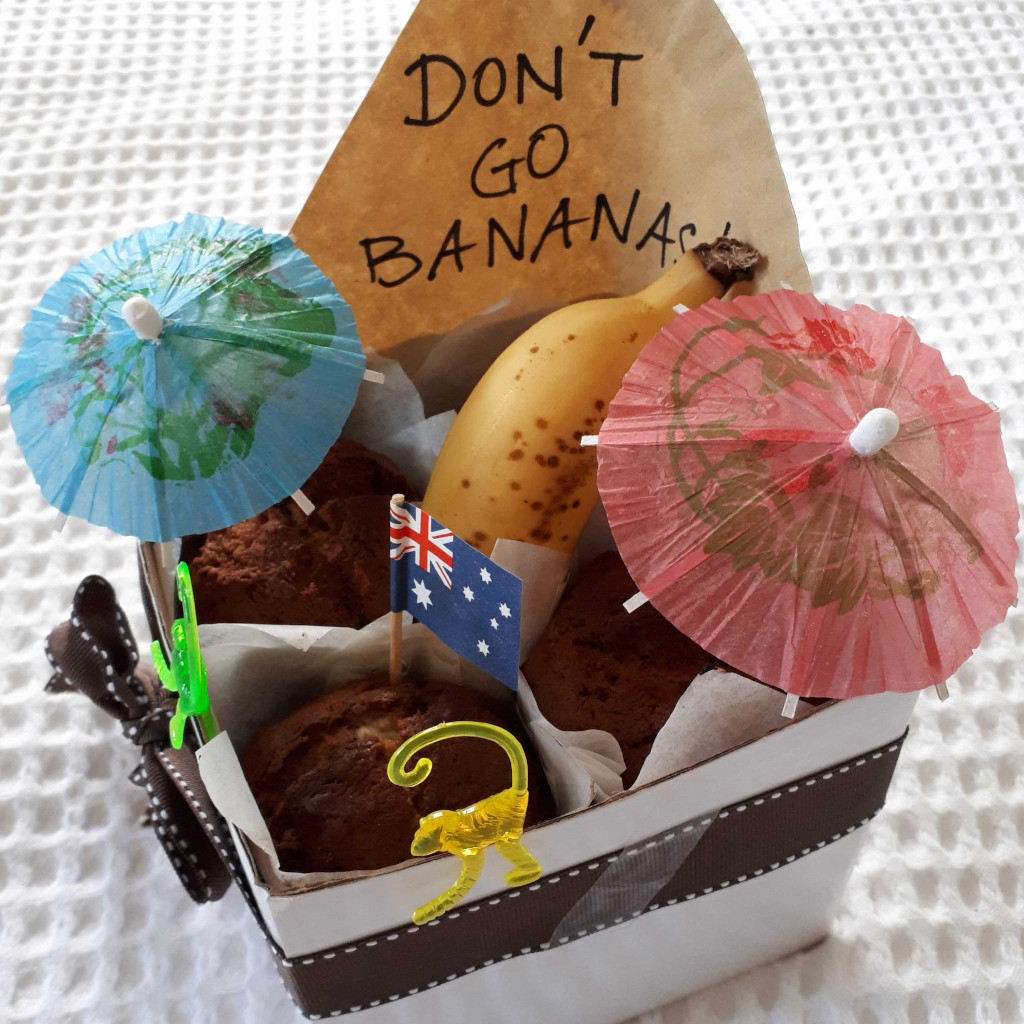 DON'T
GO
BANANAS!